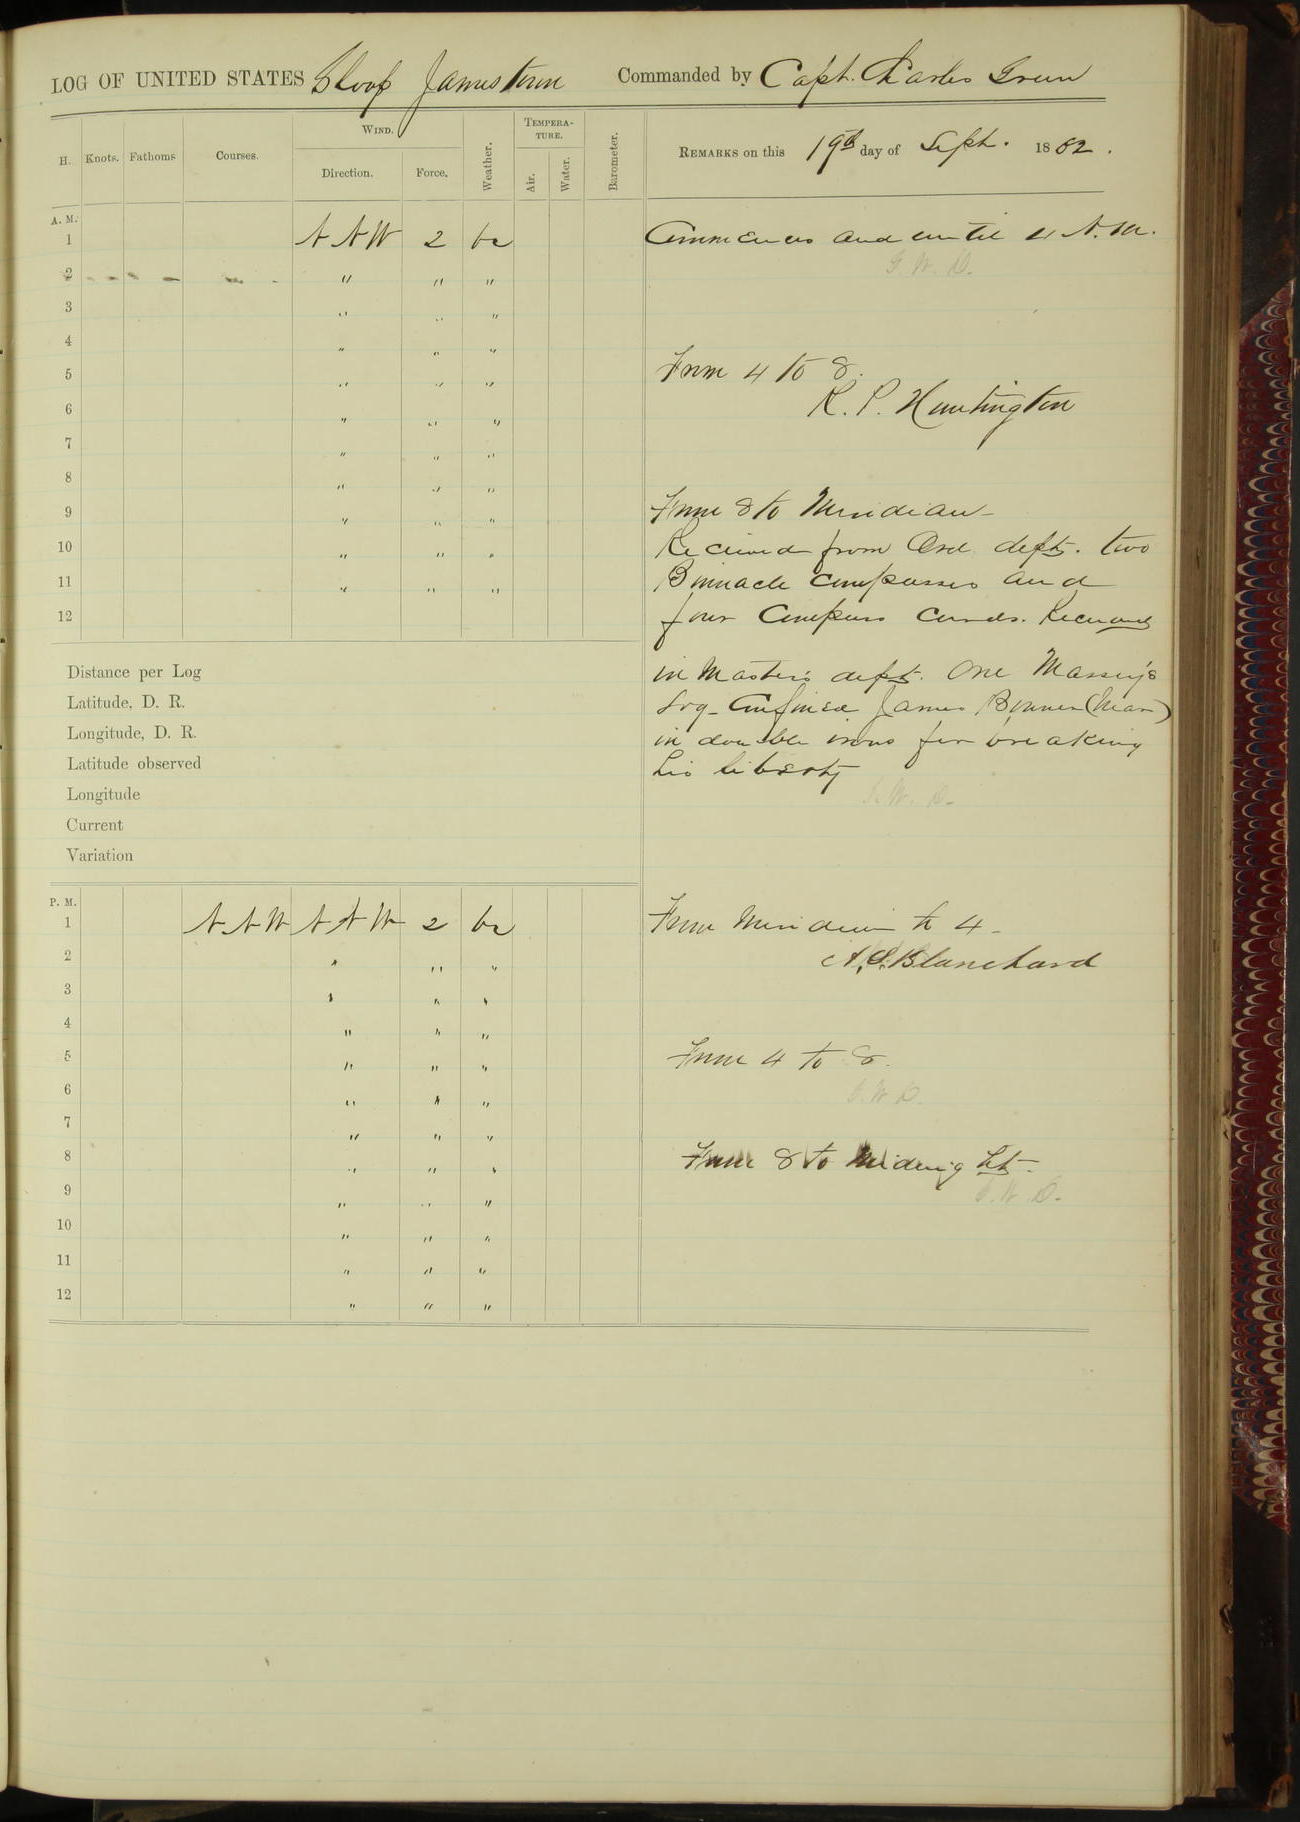 LOG OF UNITED STATES Sloop Jamestown Commanded by Capt. Charles Green
H. Knots. Fathoms Courses. WIND. Direction. Force. Weather. TEMPERATURE. Air. Water. Barometer. REMARKS on this 19th day of Sept. 1882.
A. M.
1 NNW 2 bc Commences and until 4 A.M.
G. W. D.
2 " " "
3 " " "
4 " " "
From 4 to 8.
5 " " "
R. P. Huntington
6 " " "
7 " " "
8 " " "
From 8 to Meridian
9 " " "
10 " " "
Received from Ord dept. two
11 " " "
Binnacle compasses and
12
four Compass Cards. Received
Distance per Log
in Masters dept. One Massey's
Latitude, D. R.
Log_ Confined James Bonner
Longitude, D. R.
in double irons for breaking
Latitude observed
his liberty
Longitude
W. D.
Current
Variation
P. M.
1 NNW NNW 2 bc From Meridian to 4_
2 " " "
A. S. Blanchard
3 " " "
4 " " "
5 " " "
From 4 to 8.
6 " " "
W. D.
7 " " "
8 " " "
From 8 to Midnight_
9 " " "
W. D.
10 " " "
11 " " "
12 " " "